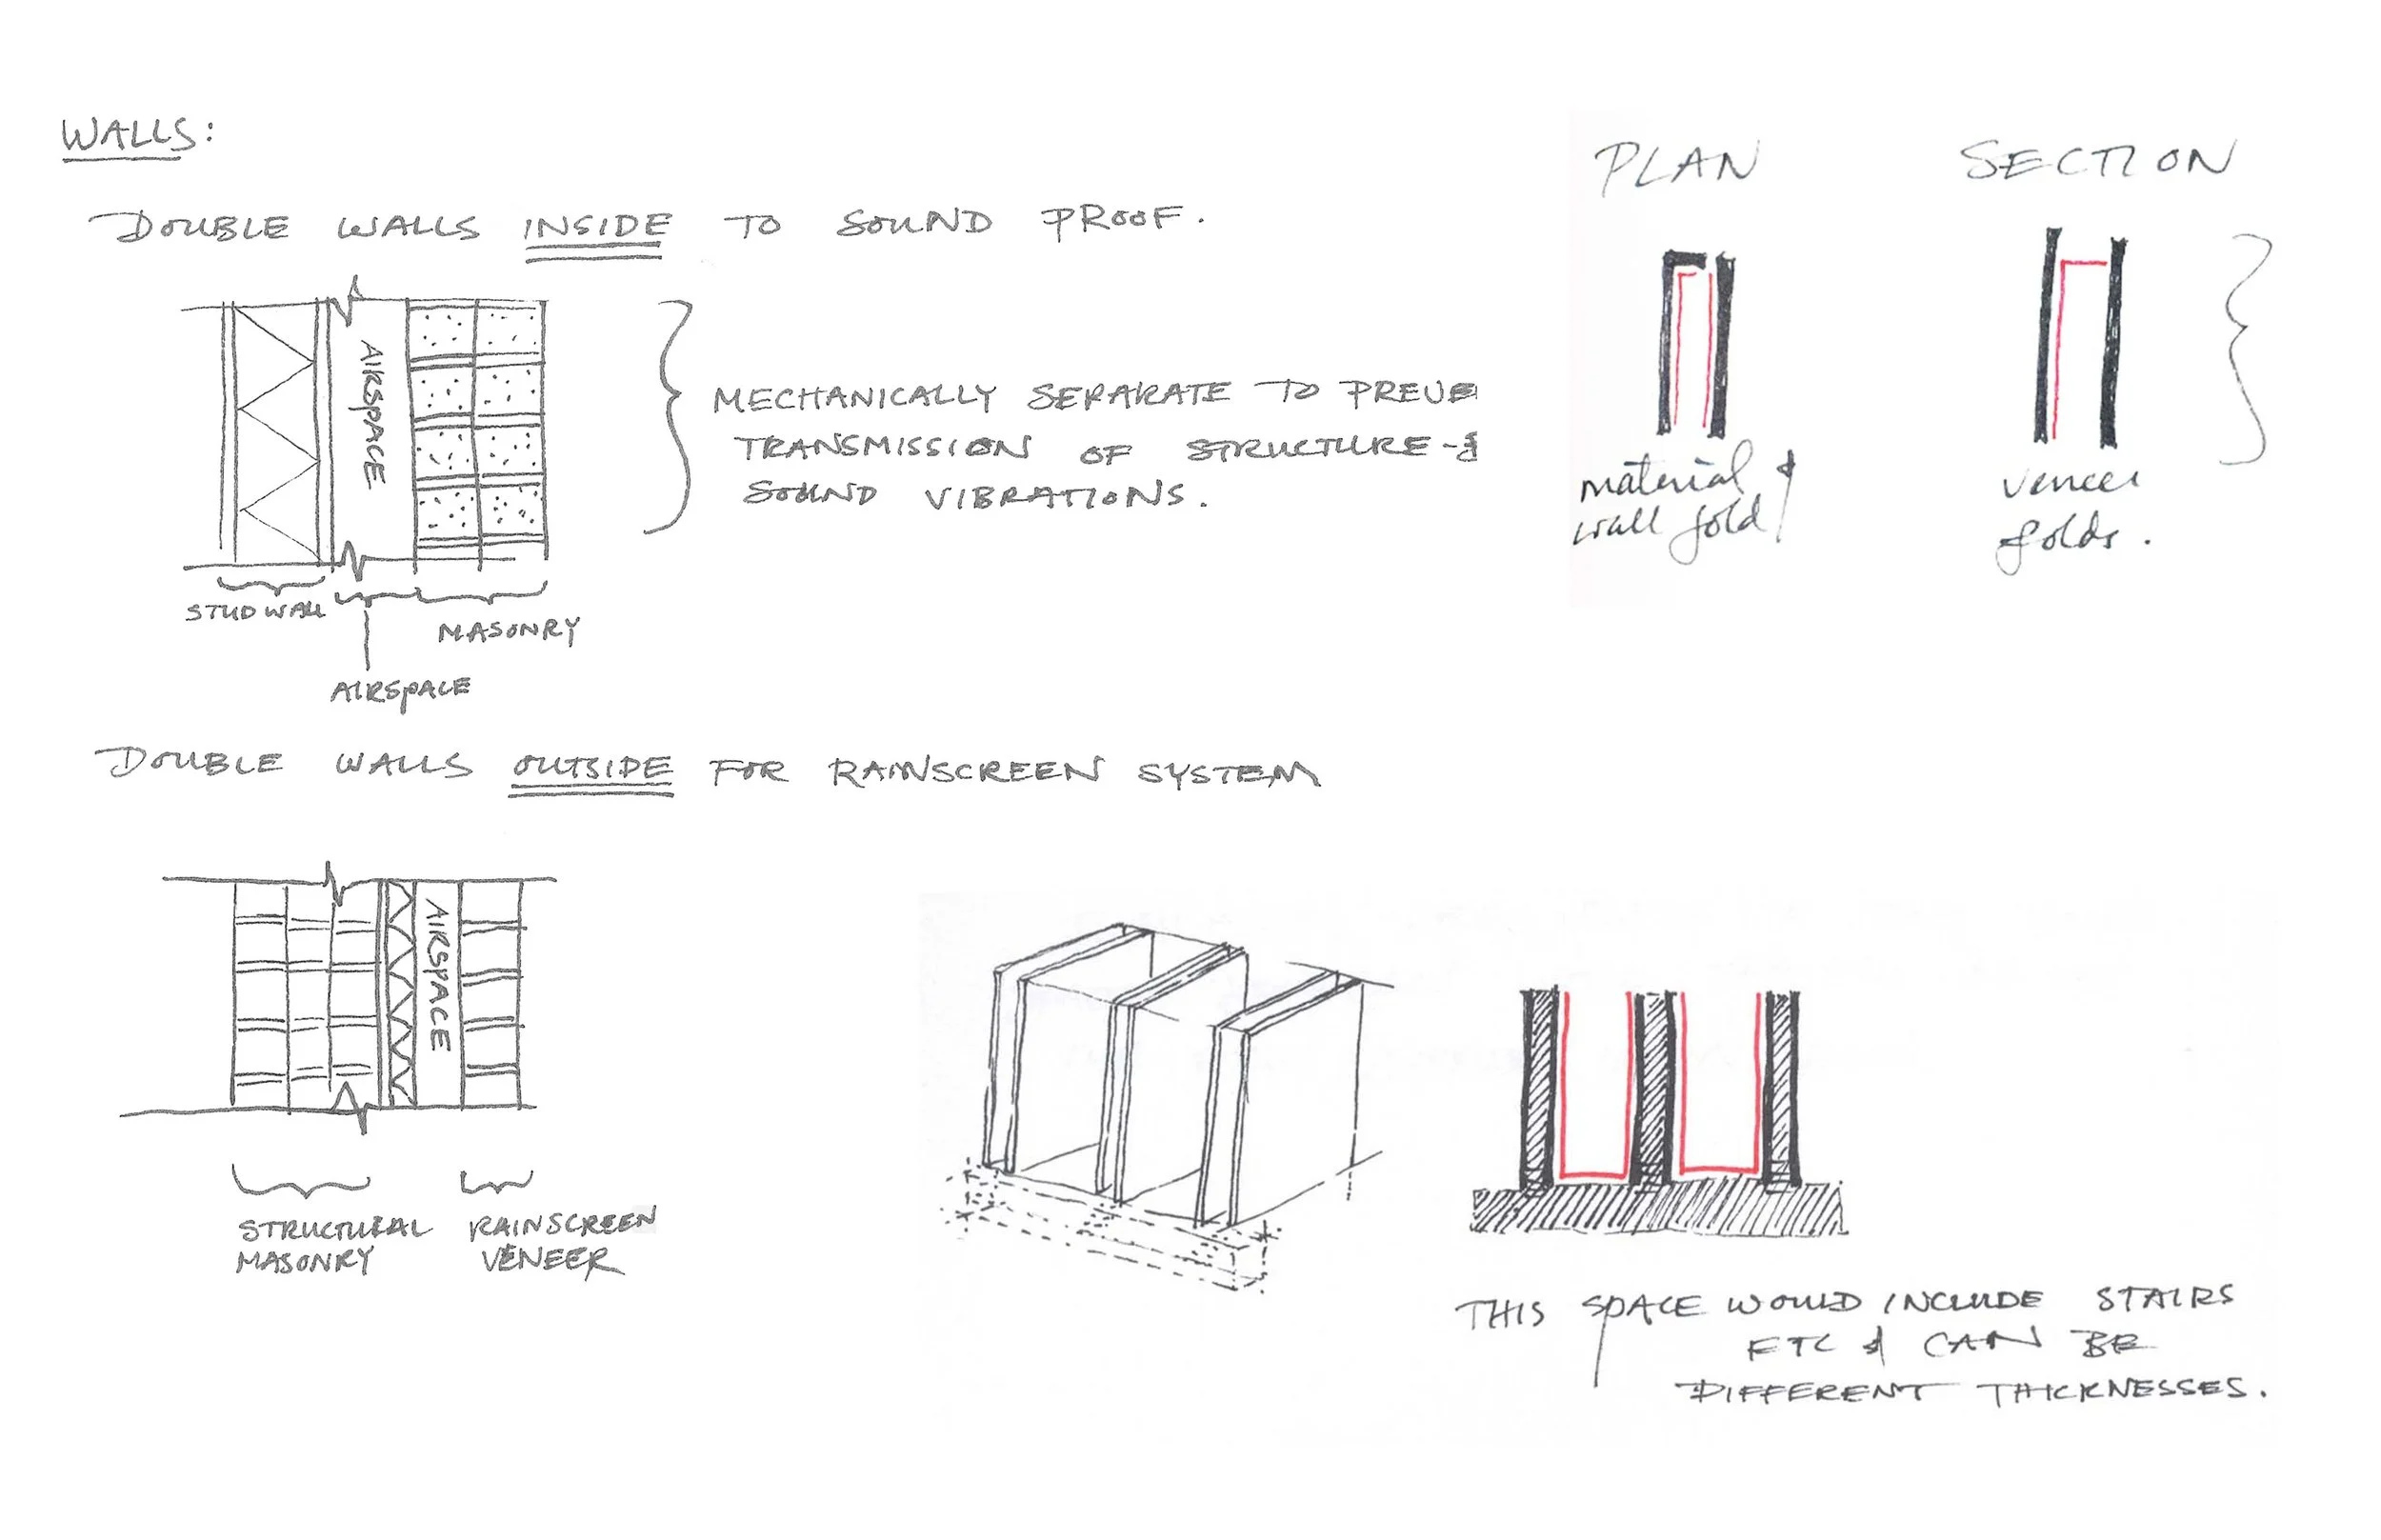 WALLS:
DOUBLE WALLS INSIDE TO SOUND PROOF.
AIRSPACE
MECHANICALLY SEPARATE TO PREVE
TRANSMISSION OF STRUCTURE-
SOUND VIBRATIONS.
STUD WALL
MASONRY
AIRSPACE
PLAN
material &
wall fold
SECTION
veneer
folds.
DOUBLE WALLS OUTSIDE FOR RAINSCREEN SYSTEM
AIRSPACE
STRUCTURAL
MASONRY
RAINSCREEN
VENEER
THIS SPACE WOULD INCLUDE STAIRS
ETC & CAN BE
DIFFERENT THICKNESSES.